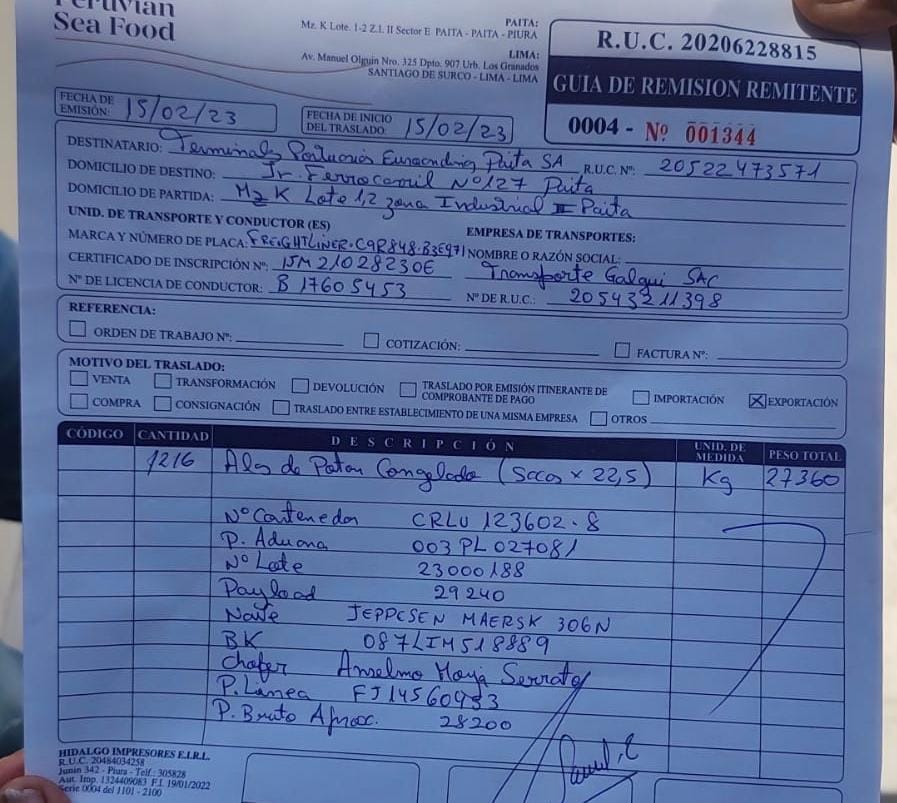 Peruvian
Sea Food
PAITA:
Mz. K Lote. 1-2 Z.I. II Sector E PAITA - PAITA - PIURA
LIMA:
Av. Manuel Olguin Nro. 325 Dpto. 907 Urb. Los Granados
SANTIAGO DE SURCO - LIMA - LIMA
R.U.C. 20206228815
GUIA DE REMISION REMITENTE
0004 - Nº 001344
FECHA DE EMISIÓN: 15/02/23
FECHA DE INICIO DEL TRASLADO: 15/02/23
DESTINATARIO: Terminales Portuarios Euroandinos Paita SA R.U.C. Nº: 20522473571
DOMICILIO DE DESTINO: Jr. Ferrocarril Nº127 Paita
DOMICILIO DE PARTIDA: Mz K Lote 1,2 zona Industrial II Paita
UNID. DE TRANSPORTE Y CONDUCTOR (ES)
EMPRESA DE TRANSPORTES:
MARCA Y NÚMERO DE PLACA: FREIGHTLINER. C9R848. B3E971 NOMBRE O RAZÓN SOCIAL:
CERTIFICADO DE INSCRIPCIÓN Nº: 15M21028230E Transporte Galqui SAC
Nº DE LICENCIA DE CONDUCTOR: B 17605453 Nº DE R.U.C.: 20543211398
REFERENCIA:
ORDEN DE TRABAJO Nº: COTIZACIÓN: FACTURA Nº:
MOTIVO DEL TRASLADO:
VENTA TRANSFORMACIÓN DEVOLUCIÓN TRASLADO POR EMISIÓN ITINERANTE DE COMPROBANTE DE PAGO IMPORTACIÓN X EXPORTACIÓN
COMPRA CONSIGNACIÓN TRASLADO ENTRE ESTABLECIMIENTO DE UNA MISMA EMPRESA OTROS
CÓDIGO CANTIDAD DESCRIPCIÓN UNID. DE MEDIDA PESO TOTAL
1216 Alas de Poton Congelado (Sacos x 22,5) Kg 27360
Nº Contenedor CRLU 123602-8
P. Aduana 003 PL 027081
Nº Lote 23000188
Payload 29240
Nave JEPPESEN MAERSK 306N
BK 087LIM518889
Chofer Anselmo Serrato
P. Linea FJ14560933
P. Bruto Aprox. 28200
HIDALGO IMPRESORES E.I.R.L.
R.U.C. 20484034258
Junin 342 - Piura - Telf.: 305828
Aut. Imp. 1324409083 F.I. 19/01/2022
Serie 0004 del 1101 - 2100